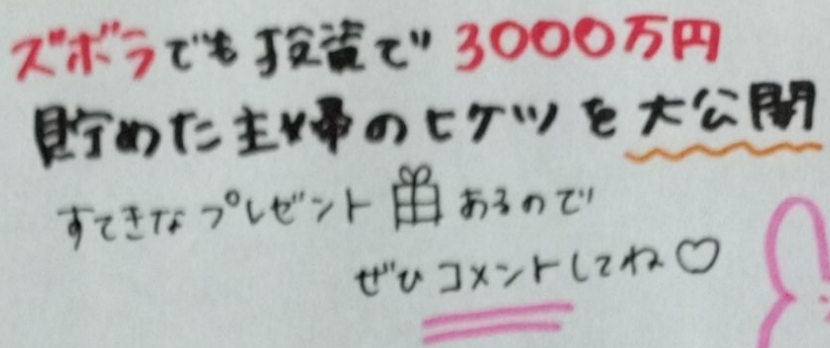 ズボラでも投資で3000万円
貯めた主婦のヒケツを大公開
すてきなプレゼントあるので
ぜひコメントしてね♡